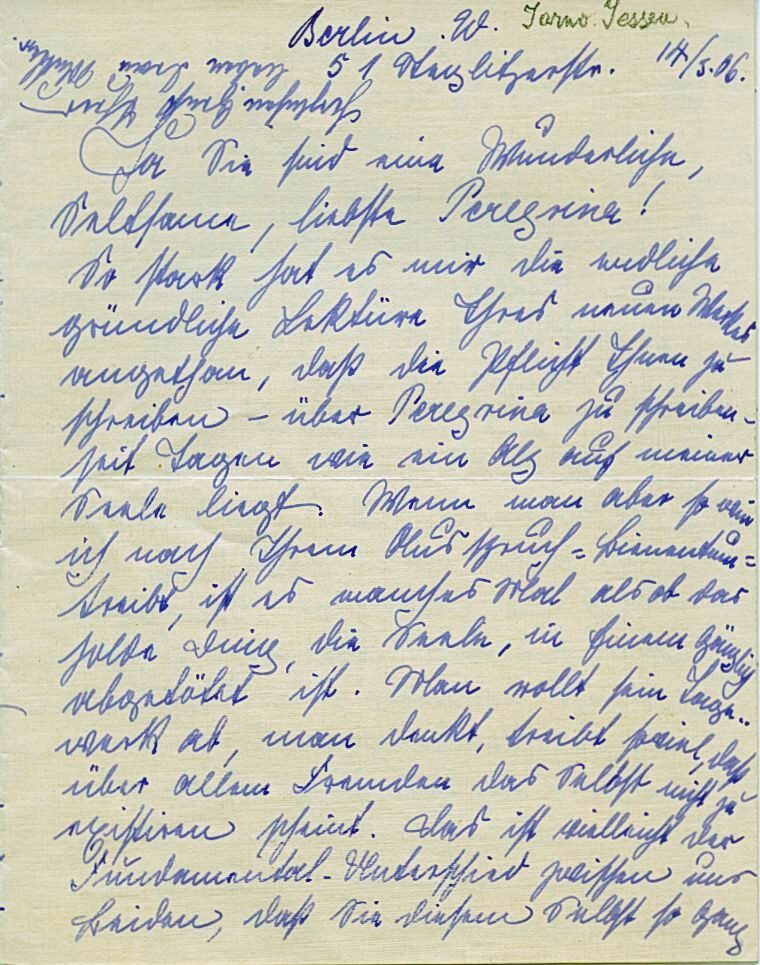 Jarno Jessen.
Berlin. W.
51 Steglitzerstr. 14/5.06.
Ja Sie sind eine Wunderliche,
Seltsame, liebste Peregrina!
So stark hat es mir die endliche
gründliche Lektüre Ihres neuen Werkes
angethan, daß die Pflicht Ihnen zu
schreiben – über Peregrina zu schreiben –
seit Tagen wie ein Alp auf meiner
Seele liegt. Wenn man aber so wie
ich nach Ihrem Ausspruch "Bienentum"
treibt, ist es manches Mal als ob das
holde Ding, die Seele, in Einem gänzlich
abgetötet ist. Man rollt sein Tage-
werk ab, man denkt, treibt soviel, daß
über allem Fremden das Selbst nicht zu
existiren scheint. Das ist vielleicht der
Fundamental-Unterschied zwischen uns
Beiden, daß Sie diesem Selbst so ganz